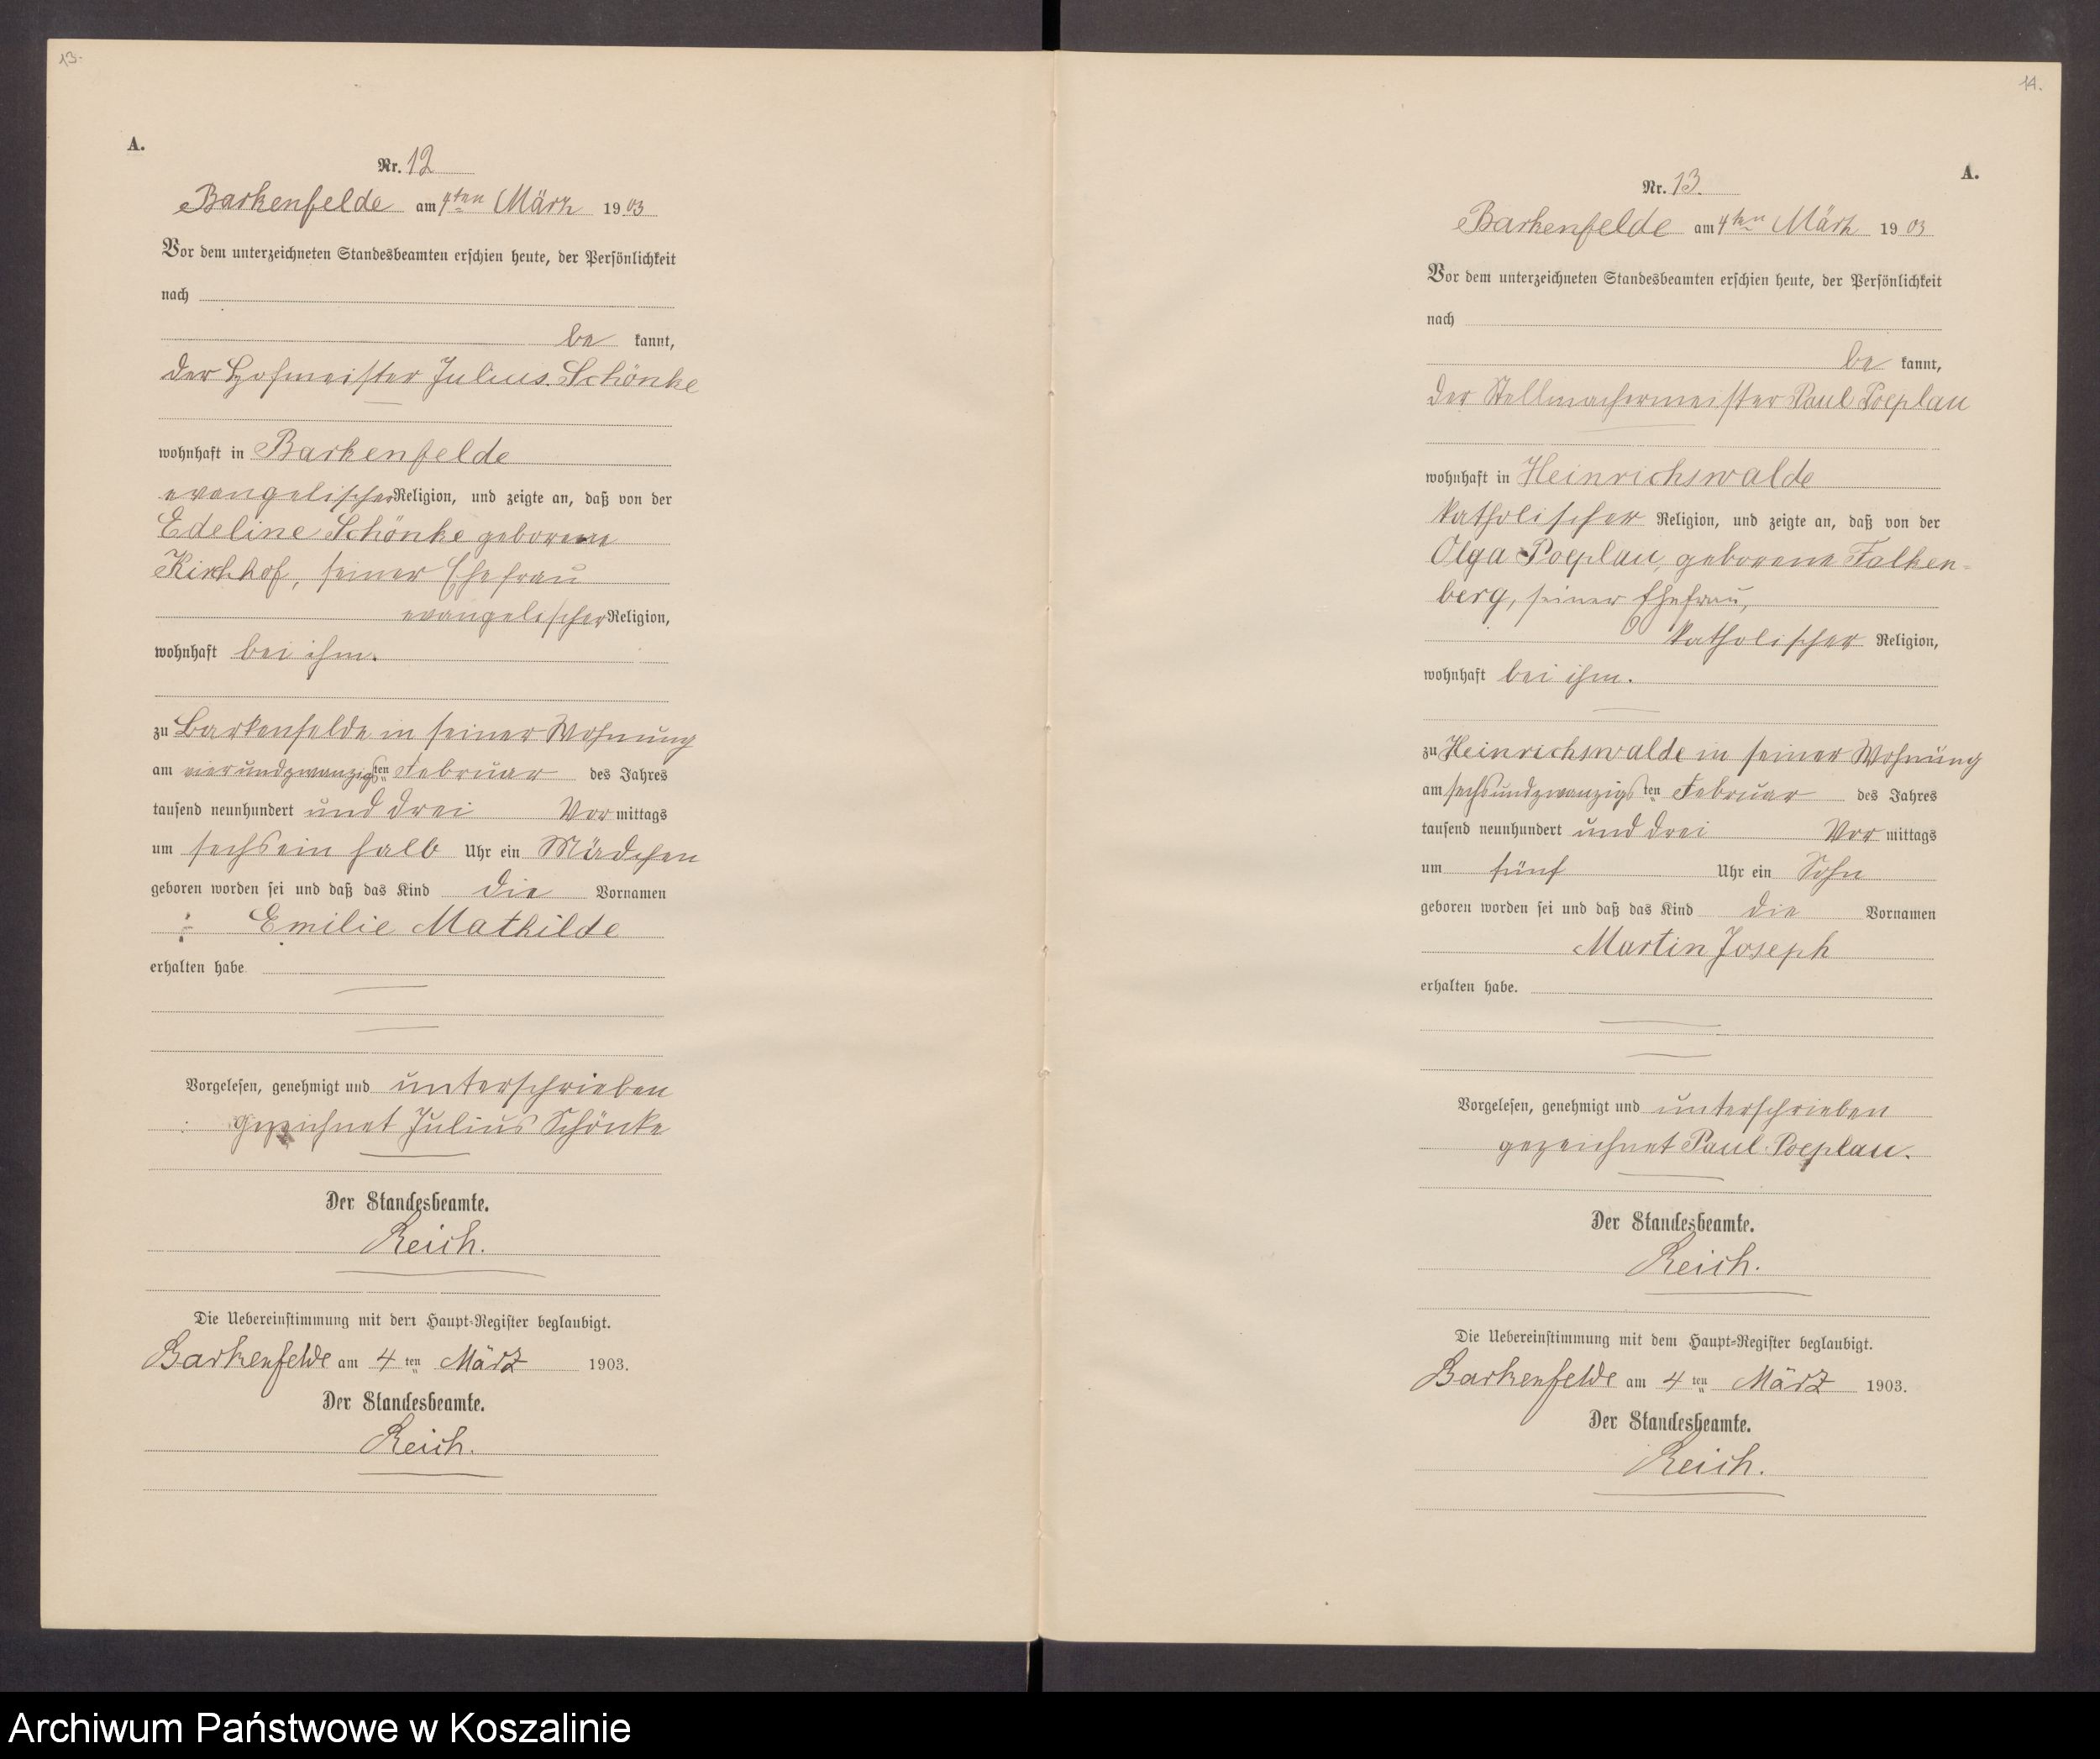 13.
A.
Nr. 12
Barkenfelde am 4ten März 1903
Vor dem unterzeichneten Standesbeamten erschien heute, der Persönlichkeit
nach
be kannt,
der Hofmeister Julius Schönke
wohnhaft in Barkenfelde
evangelischer Religion, und zeigte an, daß von der
Edeline Schönke geborene
Kirchhof, seiner Ehefrau
evangelischer Religion,
wohnhaft bei ihm.
zu Barkenfelde in seiner Wohnung
am vierundzwanzigsten Februar des Jahres
tausend neunhundert und drei Vormittags
um sechs ein halb Uhr ein Mädchen
geboren worden sei und daß das Kind die Vornamen
Emilie Mathilde
erhalten habe
Vorgelesen, genehmigt und unterschrieben
gezeichnet Julius Schönke
Der Standesbeamte.
Reich.
Die Uebereinstimmung mit dem Haupt-Register beglaubigt.
Barkenfelde am 4ten März 1903.
Der Standesbeamte.
Reich.
14.
A.
Nr. 13.
Barkenfelde am 4ten März 1903
Vor dem unterzeichneten Standesbeamten erschien heute, der Persönlichkeit
nach
be kannt,
der Stellmachermeister Paul Poeplau
wohnhaft in Heinrichswalde
katholischer Religion, und zeigte an, daß von der
Olga Poeplau, geborene Falken-
berg, seiner Ehefrau,
katholischer Religion,
wohnhaft bei ihm.
zu Heinrichswalde in seiner Wohnung
am sechsundzwanzigsten Februar des Jahres
tausend neunhundert und drei Vormittags
um fünf Uhr ein Sohn
geboren worden sei und daß das Kind die Vornamen
Martin Joseph
erhalten habe.
Vorgelesen, genehmigt und unterschrieben
gezeichnet Paul Poeplau.
Der Standesbeamte.
Reich.
Die Uebereinstimmung mit dem Haupt-Register beglaubigt.
Barkenfelde am 4ten März 1903.
Der Standesbeamte.
Reich.
Archiwum Państwowe w Koszalinie